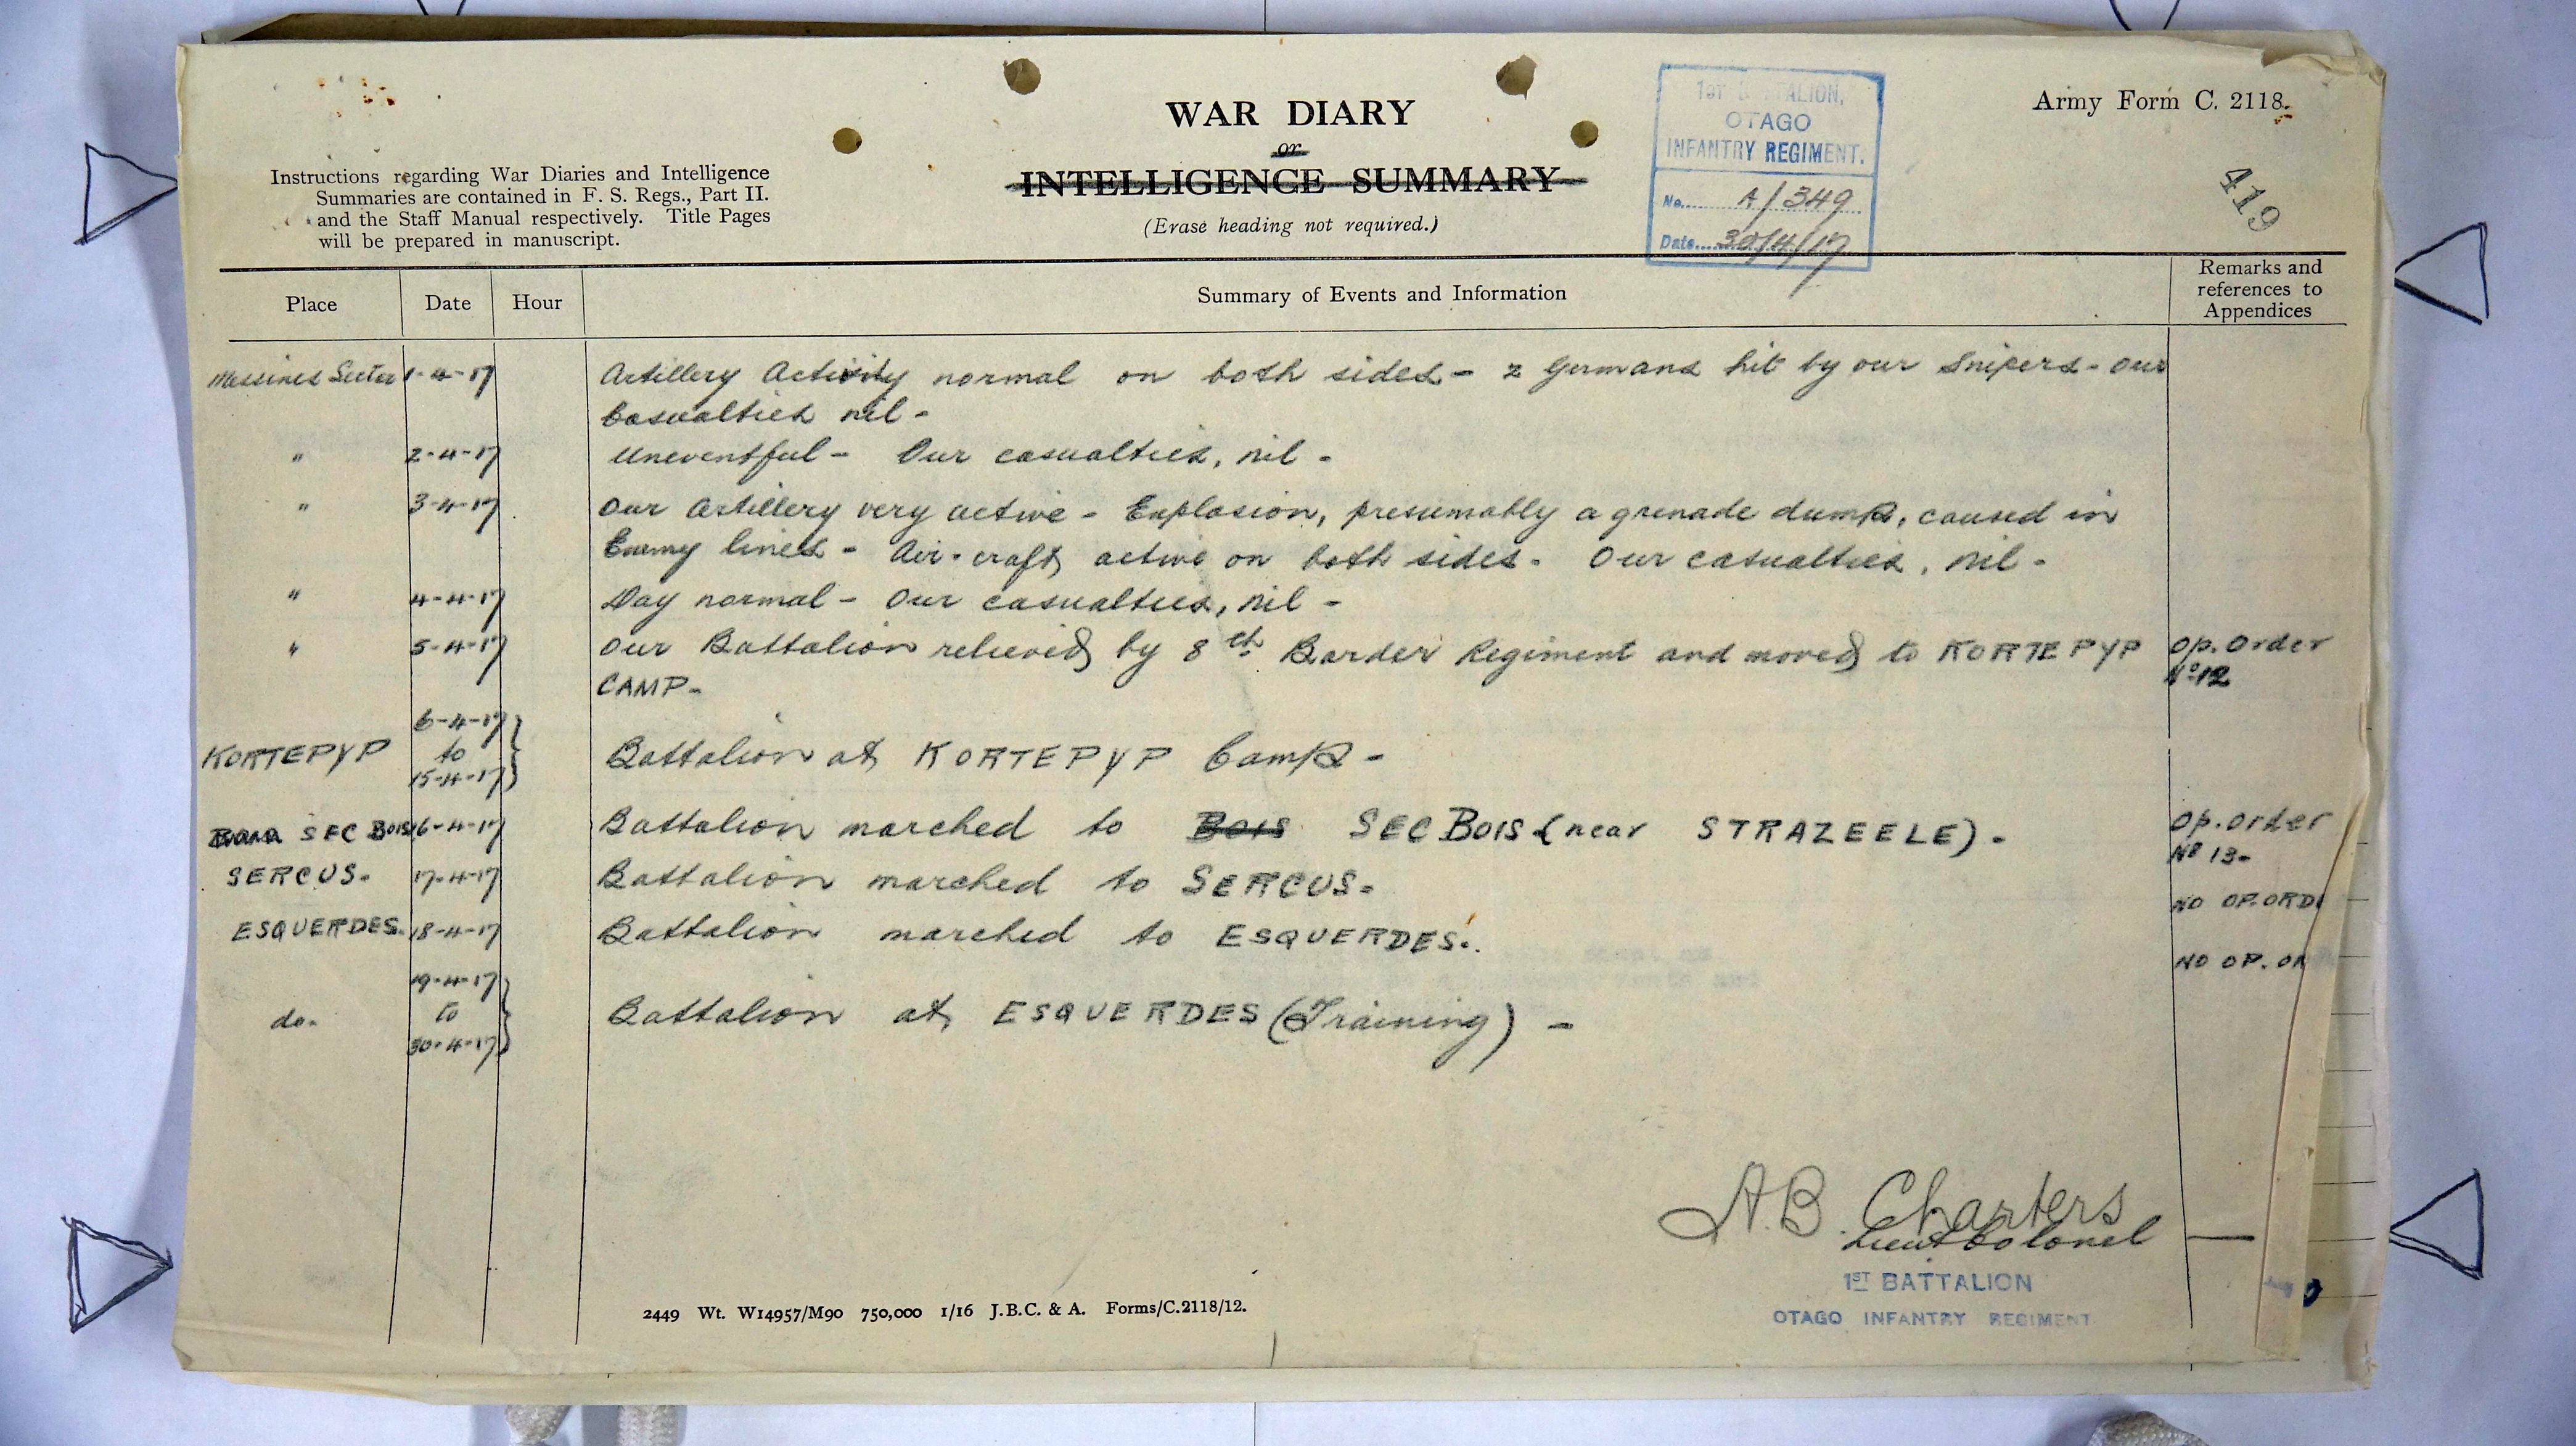 WAR DIARY
or
INTELLIGENCE SUMMARY
(Erase heading not required.)
Instructions regarding War Diaries and Intelligence
Summaries are contained in F. S. Regs., Part II.
and the Staff Manual respectively. Title Pages
will be prepared in manuscript.
1ST BATTALION,
OTAGO
INFANTRY REGIMENT.
No. A/349
Date 30/4/17
Army Form C. 2118.
419
Place Date Hour Summary of Events and Information
Remarks and
references to
Appendices
Messines Sector 1-4-17 Artillery Activity normal on both sides - 2 Germans hit by our Snipers - Our
Casualties nil -
" 2-4-17 Uneventful - Our casualties, nil -
" 3-4-17 Our Artillery very active - Explosion, presumably a grenade dump, caused in
Enemy lines - Air-craft active on both sides - Our casualties, nil -
" 4-4-17 Day normal - Our casualties, nil -
" 5-4-17 Our Battalion relieved by 8th Border Regiment and moved to KORTEPYP Op. Order
CAMP - No 12
6-4-17
KORTEPYP to Battalion at KORTEPYP Camp -
15-4-17
SEC BOIS 16-4-17 Battalion marched to Bois SEC BOIS (near STRAZEELE) - Op. Order
No 13-
SERCUS. 17-4-17 Battalion marched to SERCUS -
NO OP. ORD
ESQUERDES. 18-4-17 Battalion marched to ESQUERDES.
NO OP. OR
19-4-17
do. to Battalion at ESQUERDES (Training) -
30-4-17
A.B. Charters
Lieut Colonel
1ST BATTALION
OTAGO INFANTRY REGIMENT
2449 Wt. W14957/M90 750,000 1/16 J.B.C. & A. Forms/C.2118/12.